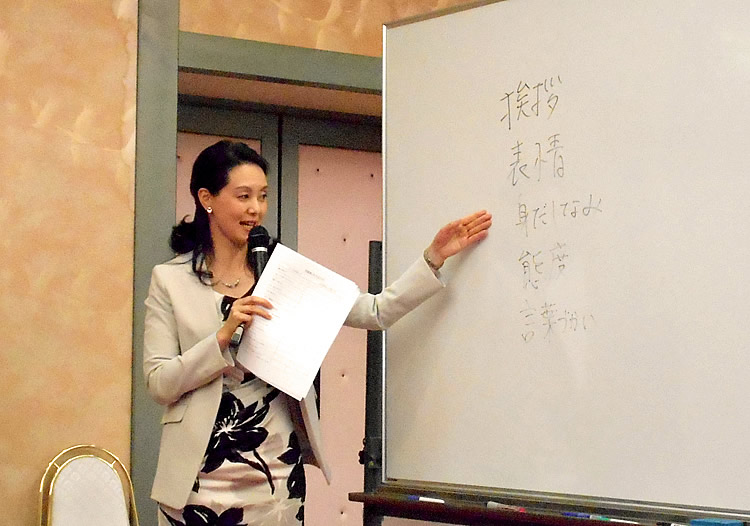 挨拶
表情
身だしなみ
態度
言葉づかい